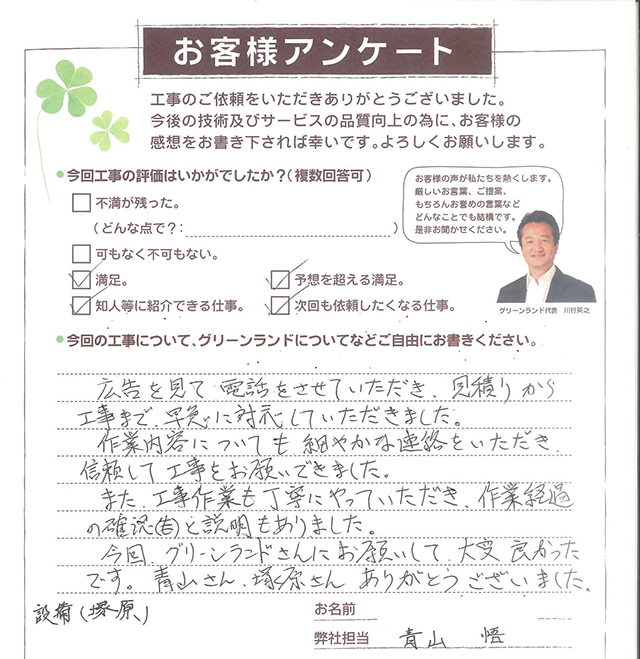 お客様アンケート
工事のご依頼をいただきありがとうございました。
今後の技術及びサービスの品質向上の為に、お客様の
感想をお書き下されば幸いです。よろしくお願いします。
今回工事の評価はいかがでしたか？（複数回答可）
不満が残った。
（どんな点で？：　　　）
可もなく不可もない。
満足。
予想を超える満足。
知人等に紹介できる仕事。
次回も依頼したくなる仕事。
お客様の声が私たちを熱くします。
厳しいお言葉、ご提案、
もちろんお誉めの言葉など
どんなことでも結構です。
是非お聞かせください。
グリーンランド代表　川村英之
今回の工事について、グリーンランドについてなどご自由にお書きください。
広告を見て電話をさせていただき、見積りから
工事まで、早急に対応していただきました。
作業内容についても細やかな連絡をいただき、
信頼して工事をお願いできました。
また、工事作業も丁寧にやっていただき、作業経過
の確認(告)と説明もありました。
今回、グリーンランドさんにお願いして、大変良かった
です。青山さん、塚原さんありがとうございました。
設備（塚原、）
お名前
弊社担当　青山　悟